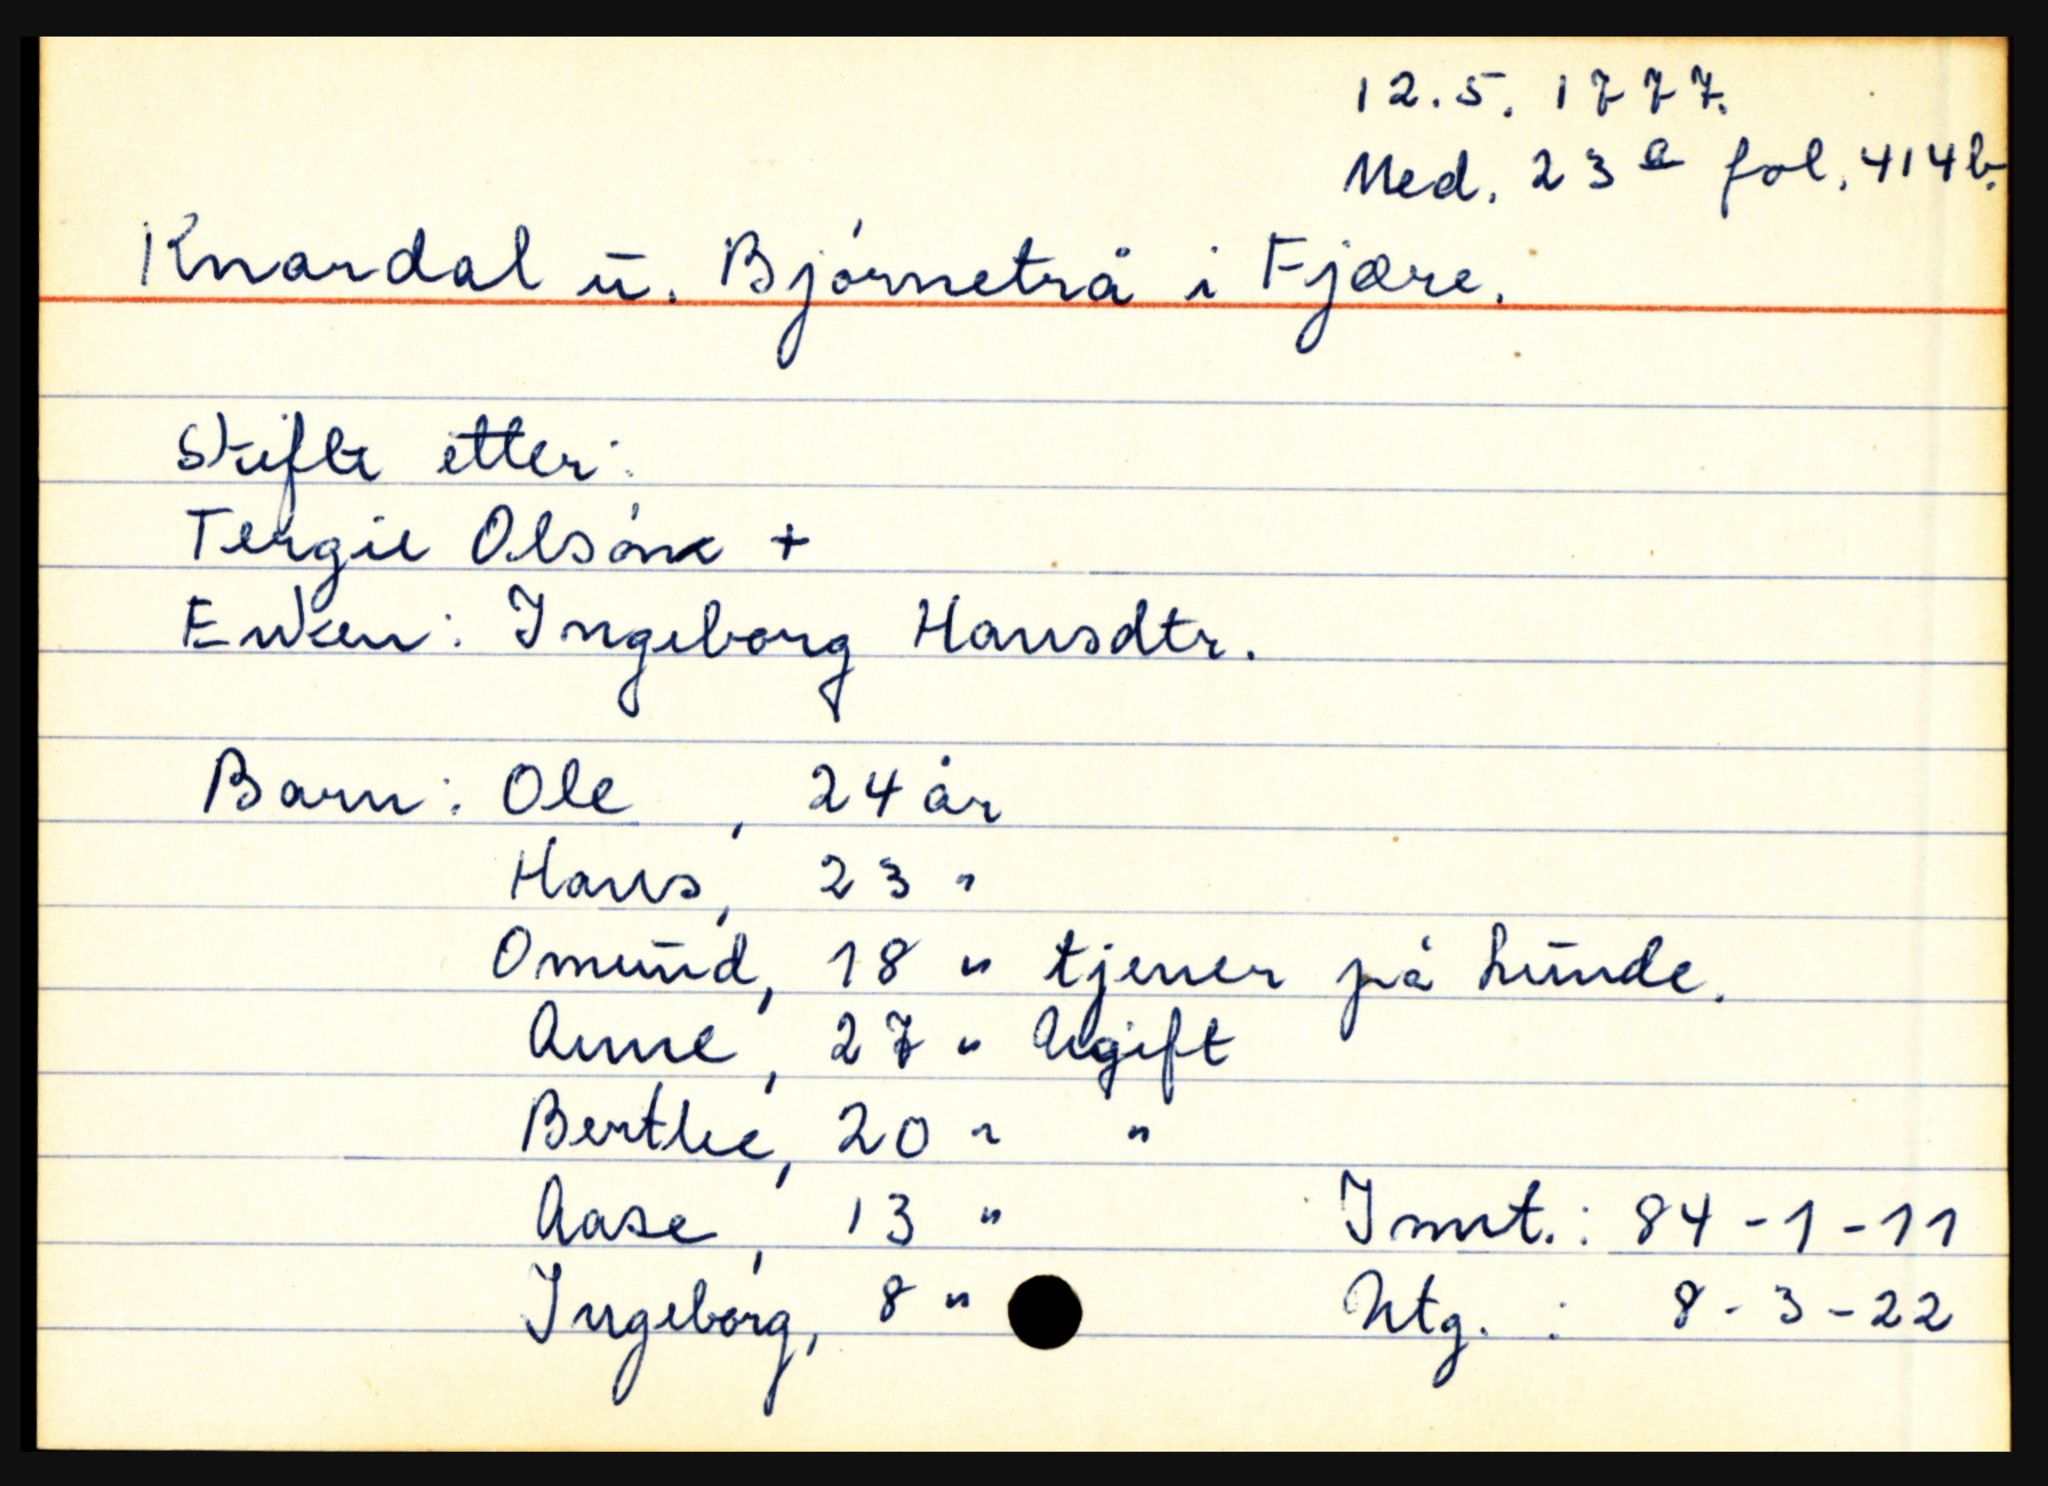 12.5.1777.
Ned. 23 a fol. 414b.
Knardal u. Bjørnetrå i Fjære.
Skifte etter:
Tergie Olsøn +
Enken: Ingeborg Hansdtr.
Barn: Ole, 24 år
Hans, 23 "
Omund, 18 " tjener på Lunde.
Anne, 27 " Ugift
Berthe, 20 " "
Aase, 13 " Innt.: 84-1-11
Ingeborg, 8 " Utg. : 8-3-22